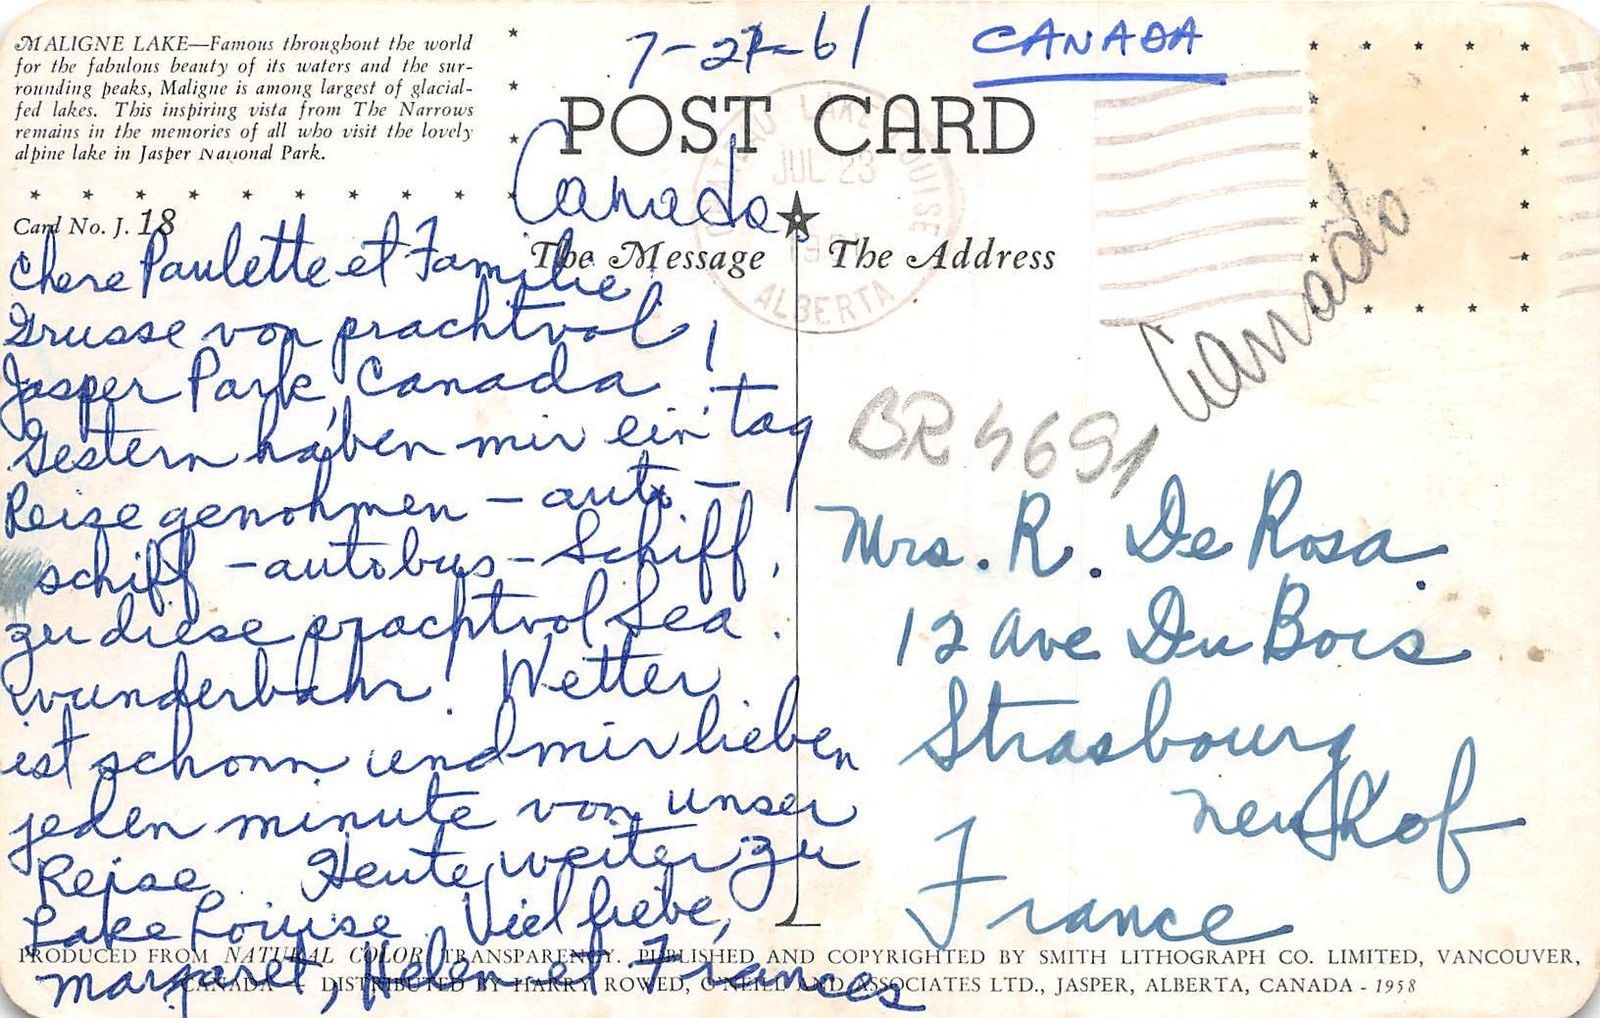 MALIGNE LAKE—Famous throughout the world
for the fabulous beauty of its waters and the sur-
rounding peaks, Maligne is among largest of glacial-
fed lakes. This inspiring vista from The Narrows
remains in the memories of all who visit the lovely
alpine lake in Jasper National Park.
Card No. J. 18
7-27-61
CANADA
POST CARD
LAKE LOUISE
JUL 23
ALBERTA
Canada
The Message
The Address
Chere Paulette et Familie,
Grusse von prachtvol
Jasper Park, Canada!
Gestern haben mir ein tag
Reise genohmen - auto -
schiff - autobus - Schiff,
zu diese prachtvol Sea.
wunderbahr! Wetter
ist schonn und mir lieben
jeden minute von unser
Reise. Heute weiter zu
Lake Louise. Viel liebe,
Margaret, Helen et Frances
Canada
BR 4691
Mrs. R. De Rosa
12 Ave Du Bois
Strasbourg
neuhof
France
PRODUCED FROM NATURAL COLOR TRANSPARENCY. PUBLISHED AND COPYRIGHTED BY SMITH LITHOGRAPH CO. LIMITED, VANCOUVER,
CANADA - DISTRIBUTED BY HARRY ROWED, O'NEILL AND ASSOCIATES LTD., JASPER, ALBERTA, CANADA - 1958